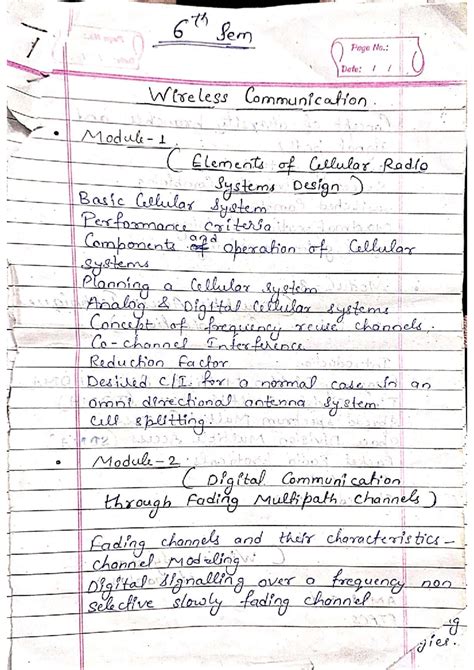 6th Sem
Page No.:
Date: / /
Wireless Communication.
• Module-1
( Elements of Cellular Radio
Systems Design )
Basic Cellular System
Performance criteria
Components and operation of Cellular
systems
Planning a Cellular system
Analog & Digital Cellular systems
Concept of frequency reuse channels.
Co-channel Interference
Reduction Factor
Desired C/I. for a normal case in an
omni directional antenna system
cell splitting.
• Module-2
( Digital Communication
through Fading Multipath channels )
Fading channels and their characteristics-
channel Modeling.
Digital signalling over a frequency non
selective slowly fading channel